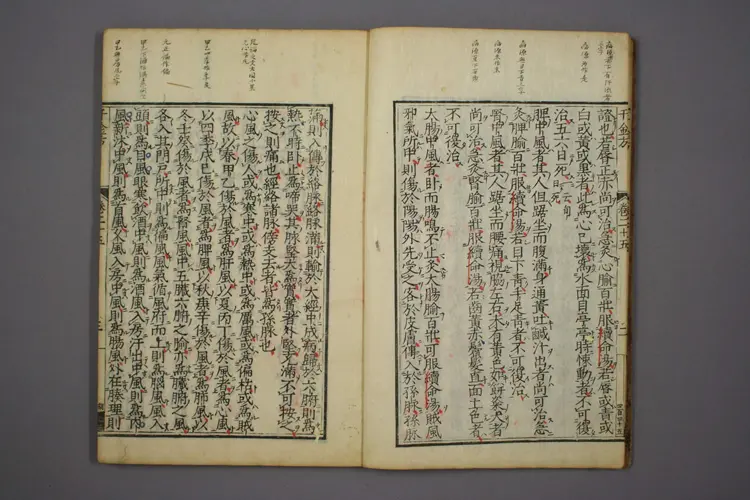 千金方 卷二十五 二
證也若唇正赤尚可治急灸心腧百壯服續命湯若唇或青或
白或黃或黑者此為心已壞為水面目亭亭時悚動者不可復
治五六日死一云旬日死
脾中風者其人但踞坐而腹滿身通黃吐鹹汁出者尚可治急
灸脾腧百壯服續命湯若目下青手足青者不可復治
腎中風者其人踞坐而腰痛視脇左右未有黃色如餅粢大者
尚可治急灸腎腧百壯服續命湯若齒黃赤鬢髮直面土色者
不可復治
大腸中風者臥而腸鳴不止灸大腸腧百壯可服續命湯賊風
邪氣所中則傷於陽陽外先受之客於皮膚傳入於孫脉孫脉
滿則入傳於絡脉絡脉滿則輸於大經中成病歸於六腑則為
熱不時臥止為啼哭其脉堅大為實實者外堅充滿不可按之
按之則痛也經絡諸脉傍支去者皆為孫脉也
心風之傷人或為寒中或為熱中或為厲風或為偏枯或為賊
風故以春甲乙傷於風者為肝風以夏丙丁傷於風者為心風
以四季戊巳傷於風者為脾風以秋庚辛傷於風者為肺風以
冬壬癸傷於風者為腎風風中五臟六腑之腧亦為臟腑之風
各入其門戶所中則為偏風風氣循風府而上則為腦風風入
頭則為目風眼寒飲酒中風則為酒風入房汗出中風則為內
風新沐中風則為首風久風入房中風則為腸風外在腠理則
千金方 卷二十五